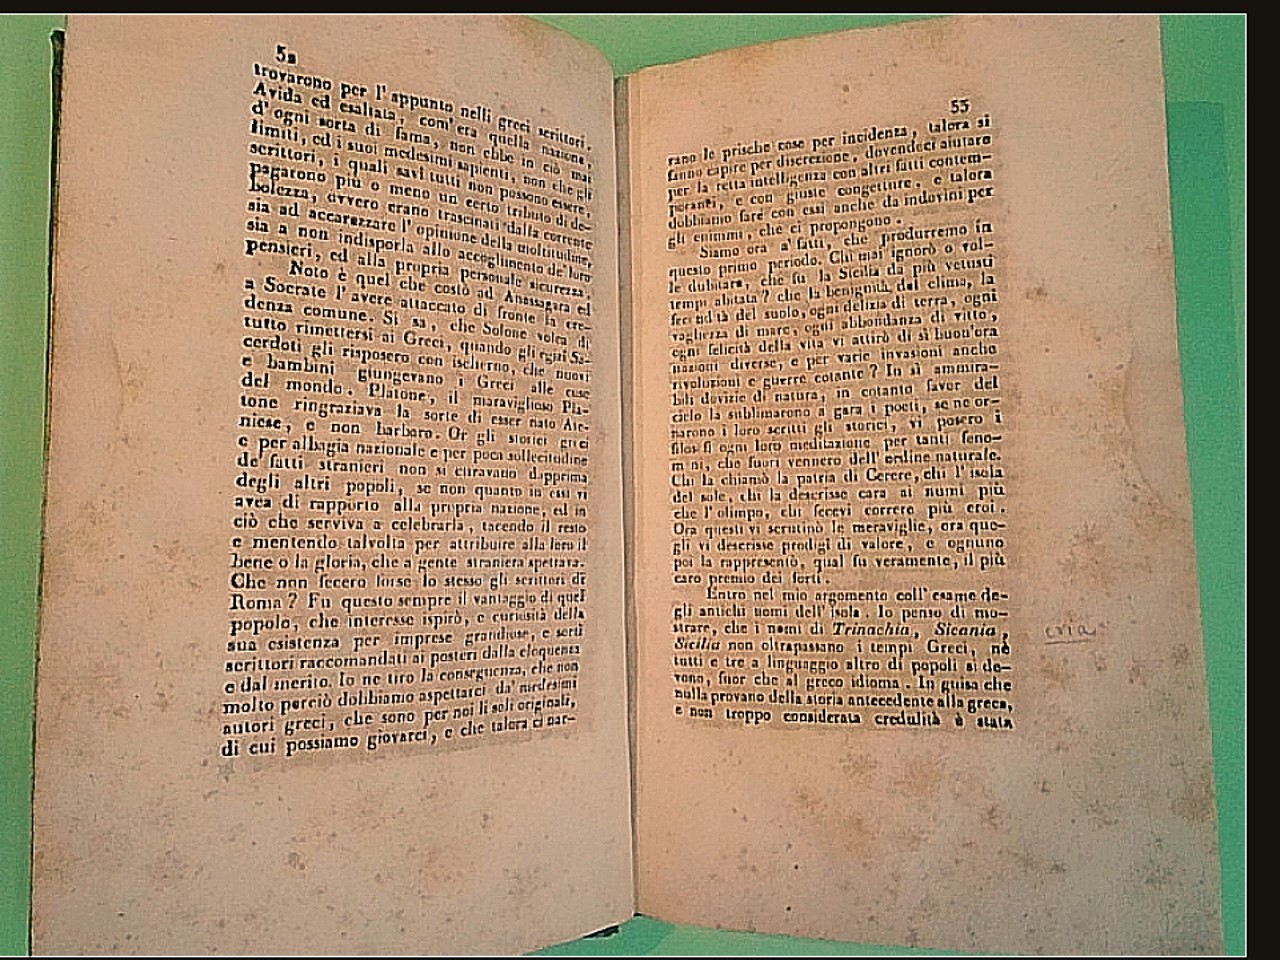 52
trovarono per l'appunto nelli greci scrittori.
Avida ed esaltata, com'era quella nazione,
d'ogni sorta di fama, non ebbe in ciò mai
limiti, ed i suoi medesimi sapienti, non che gli
scrittori, i quali savi tutti non possono essere,
pagarono più o meno un certo tributo di de-
bolezza, ovvero erano trascinati dalla corrente
sia ad accarezzare l'opinione della moltitudine,
sia a non indisporla allo accoglimento de' loro
pensieri, ed alla propria personale sicurezza.
Noto è quel che costò ad Anassagara ed
a Socrate l'avere attaccato di fronte la cre-
denza comune. Si sa, che Solone volea di
tutto rimettersi ai Greci, quando gli egizi Sa-
cerdoti gli risposero con ischerno, che nuovi
e bambini giungevano i Greci alle cose
del mondo. Platone, il maraviglioso Pla-
tone ringraziava la sorte di esser nato Ate-
niese, e non barbaro. Or gli storici greci
e per albagia nazionale e per poca sollecitudine
de' fatti stranieri non si curavano dapprima
degli altri popoli, se non quanto in essi vi
avea di rapporto alla propria nazione, ed in
ciò che serviva a celebrarla, tacendo il resto
e mentendo talvolta per attribuire alla loro il
bene o la gloria, che a gente straniera spettava.
Che non fecero forse lo stesso gli scrittori di
Roma? Fu questo sempre il vantaggio di quel
popolo, che interesse ispirò, e curiosità della
sua esistenza per imprese grandiose, e sorti
scrittori raccomandati ai posteri dalla eloquenza
e dal merito. Io ne tiro la conseguenza, che non
molto perciò dobbiamo aspettarci da' medesimi
autori greci, che sono per noi li soli originali,
di cui possiamo giovarci, e che talora ci nar-
53
rano le prische cose per incidenza, talora si
fanno capire per discrezione, dovendoci aiutare
per la retta intelligenza con altri fatti contem-
poranei, e con giuste congetture, e talora
dobbiamo fare con essi anche da indovini per
gli enimmi, che ci propongono.
Siamo ora a' fatti, che produrremo in
questo primo periodo. Chi mai ignorò o vol-
le dubitare, che fu la Sicilia da più vetusti
tempi abitata? che la benignità del clima, la
fecondità del suolo, ogni delizia di terra, ogni
vaghezza di mare, ogni abbondanza di vitto,
ogni felicità della vita vi attirò di sì buon'ora
nazioni diverse, e per varie invasioni anche
rivoluzioni e guerre cotante? In sì ammira-
bili dovizie di natura, in cotanto favor del
cielo la sublimarono a gara i poeti, se ne or-
narono i loro scritti gli storici, vi posero i
filosofi ogni loro meditazione per tanti feno-
meni, che fuori vennero dell'ordine naturale.
Chi la chiamò la patria di Cerere, chi l'isola
del sole, chi la descrisse cara ai numi più
che l'olimpo, chi fecevi correre più eroi.
Ora questi vi scrutinò le meraviglie, ora que-
gli vi descrisse prodigi di valore, e ognuno
poi la rappresentò, qual fu veramente, il più
caro premio dei forti.
Entro nel mio argomento coll'esame de-
gli antichi nomi dell'isola. Io penso di mo-
strare, che i nomi di Trinachia, Sicania,
Sicilia non oltrapassano i tempi Greci, nè
tutti e tre a linguaggio altro di popoli si de-
vono, fuor che al greco idioma. In guisa che
nulla provano della storia antecedente alla greca,
e non troppo considerata credulità è stata